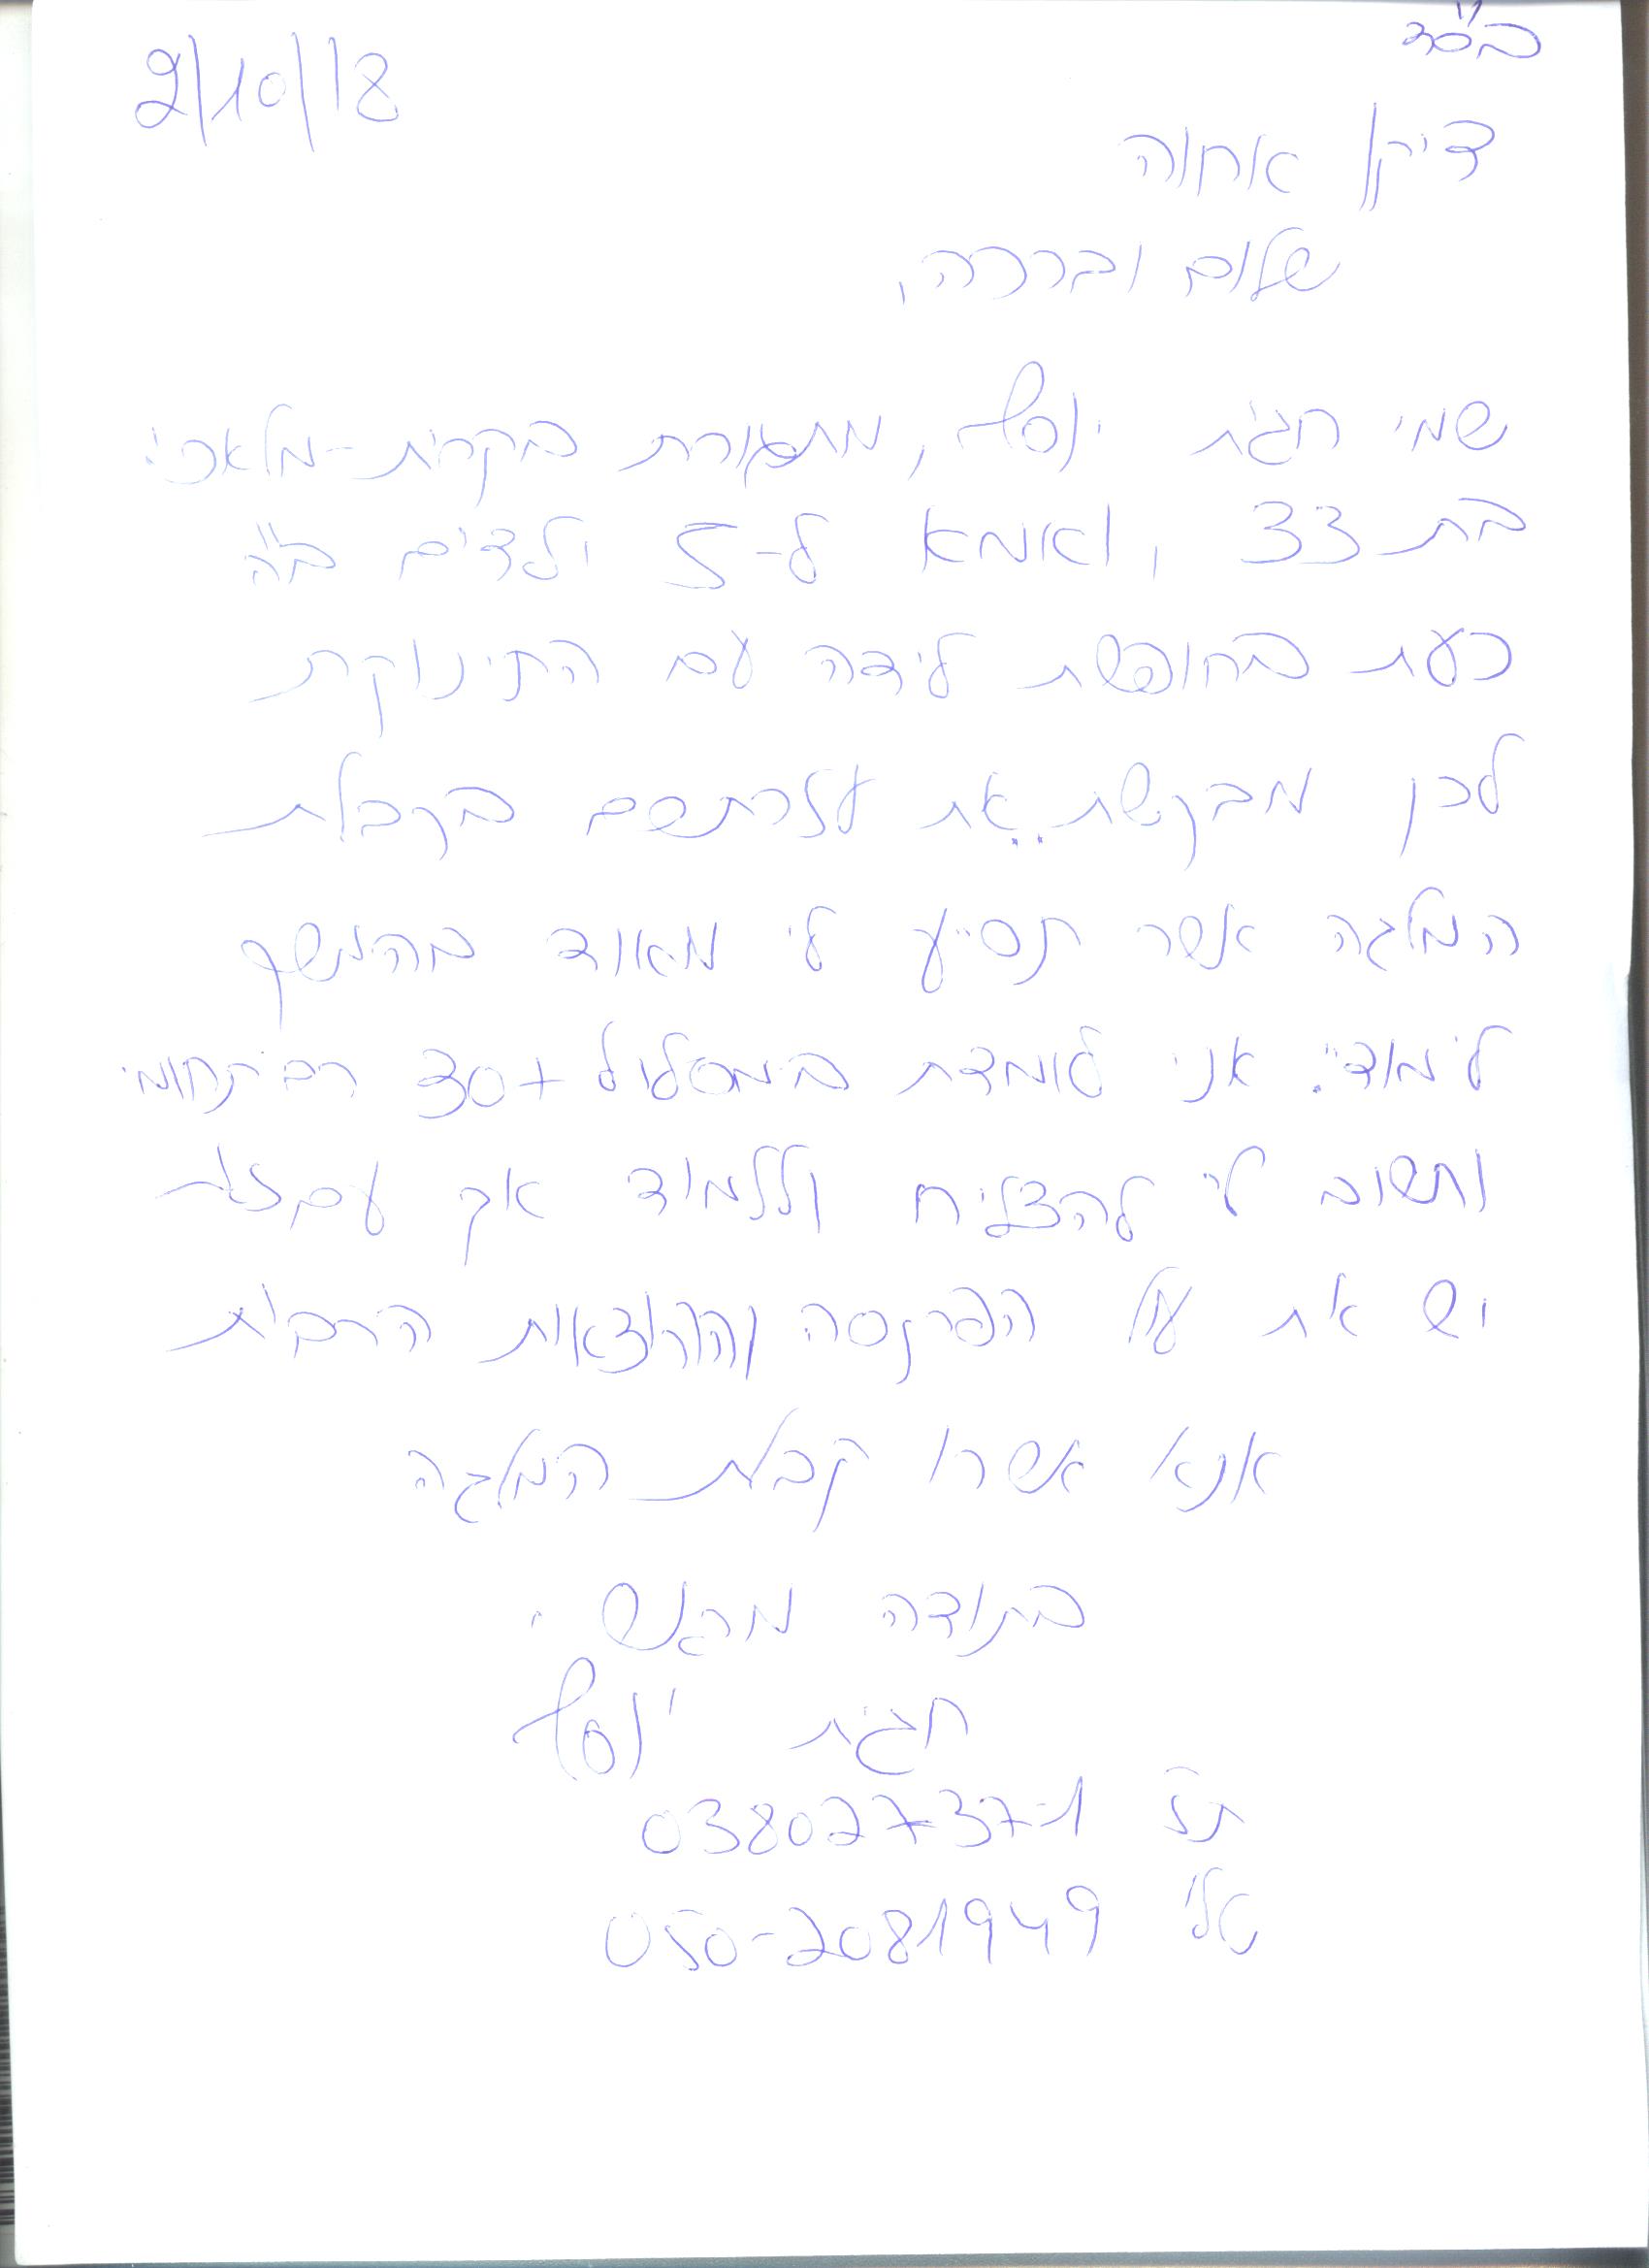 בס"ד
2/10/18
דיקן אחוה
שלום וברכה,
שמי חגית יוסף, מתגוררת בקרית-מלאכי
בת 33, ואמא ל-5 ילדים ב"ה
כעת בחופשת לידה עם התינוקת
לכן מבקשת את עזרתכם בקבלת
המלגה אשר תסייע לי מאוד בהמשך
לימודיי. אני לומדת במסלול +30 רב תחומי
וחשוב לי להצליח וללמוד אך עם זאת
יש את עול הפרנסה וההוצאות הרבות
אנא אשרו קבלת המלגה
בתודה מראש,
חגית יוסף
תז 03802737-1
טלי 050-2081949